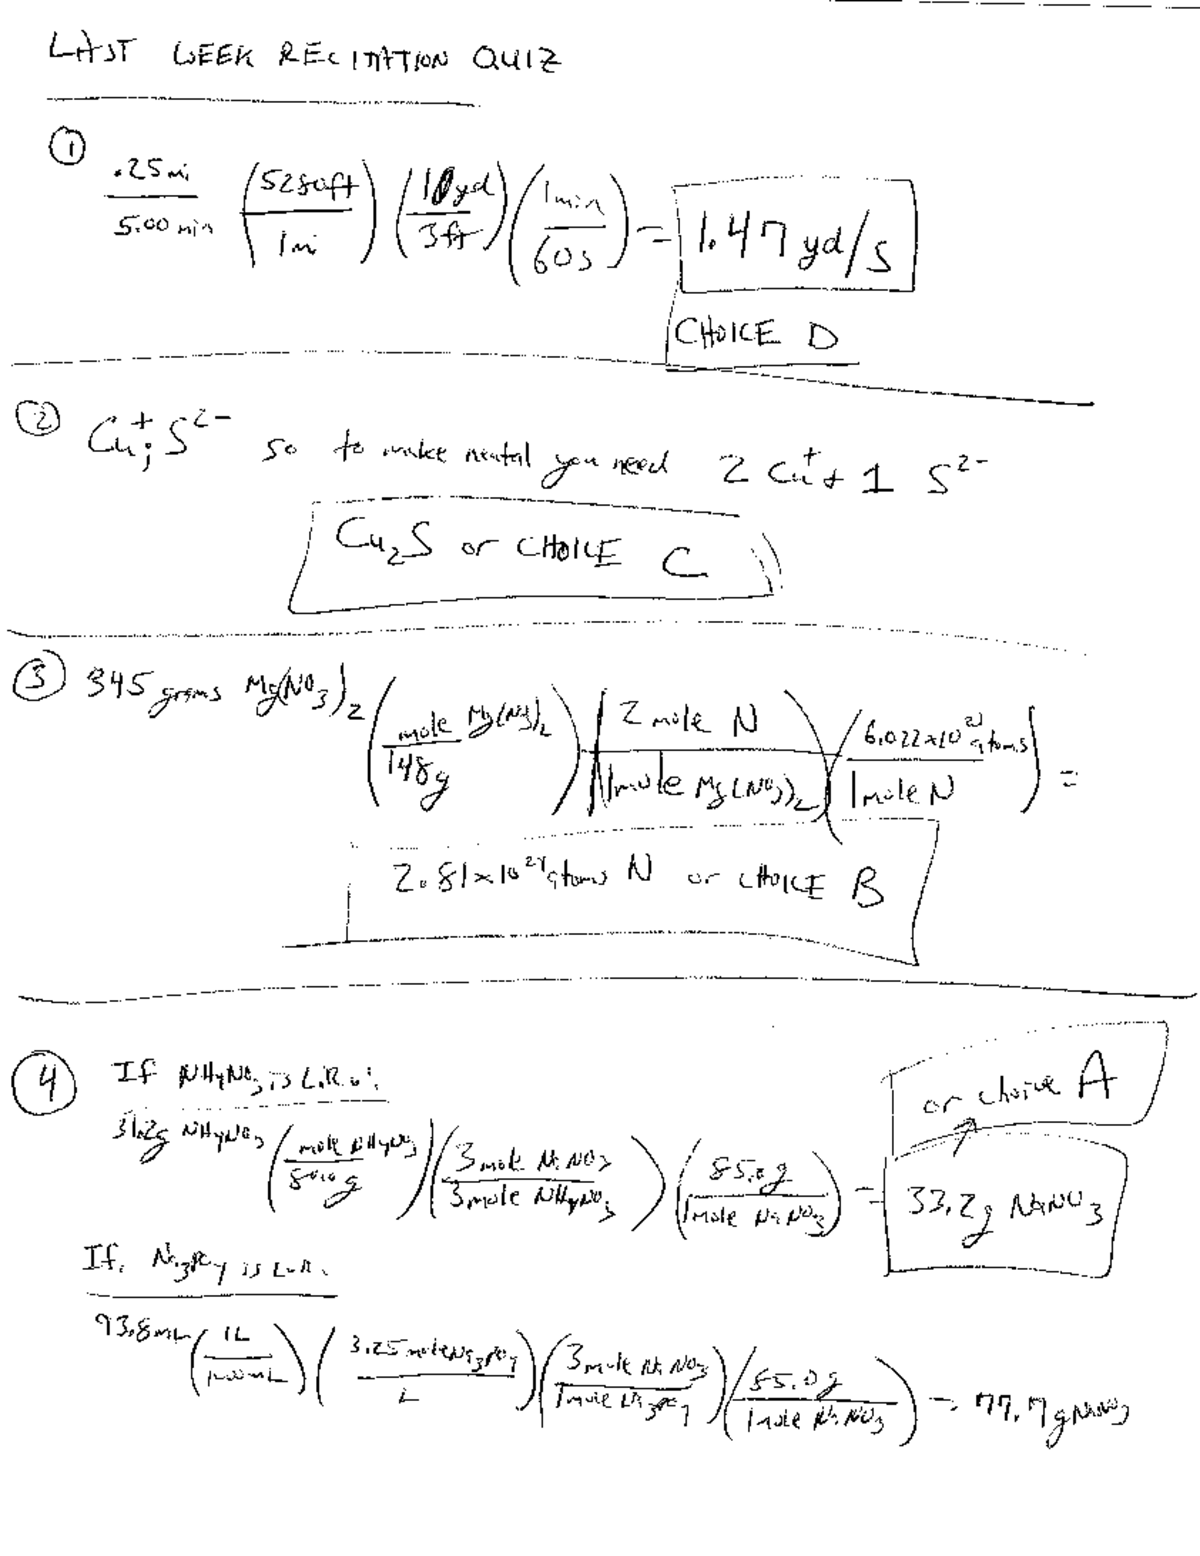 LAST WEEK RECITATION QUIZ
① .25 mi / 5.00 min (5280ft / 1 mi) (1 yd / 3 ft) (1 min / 60 s) = 1.47 yd/s
CHOICE D
② Cu⁺; S²⁻ so to make neutral you need 2 Cu⁺ + 1 S²⁻
Cu₂S or CHOICE C
③ 345 grams Mg(NO₃)₂ (mole Mg(NO₃)₂ / 148g) (2 mole N / 1 mole Mg(NO₃)₂) (6.022x10²³ atoms / 1 mole N) =
2.81x10²⁴ atoms N or CHOICE B
④ If NH₄NO₃ is L.R.:
or choice A
31.2g NH₄NO₃ (mole NH₄NO₃ / 80.0 g) (3 mole NaNO₃ / 3 mole NH₄NO₃) (85.0g / 1 mole NaNO₃) = 33.2g NaNO₃
If Na₃PO₄ is L.R.
93.8mL (1L / 1000mL) (3.25 mole Na₃PO₄ / L) (3 mole NaNO₃ / 1 mole Na₃PO₄) (85.0g / 1 mole NaNO₃) = 77.7g NaNO₃